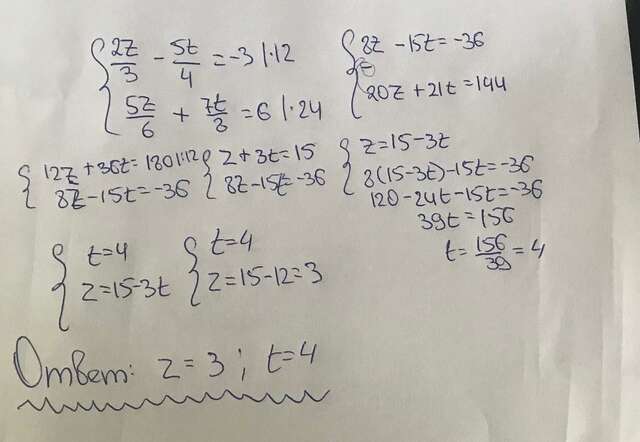 { 2z/3 - 5t/4 = -3 |·12
5z/6 + 7t/8 = 6 |·24
{ 8z - 15t = -36
20z + 21t = 144
{ 12z + 36t = 180 |:12
8z - 15t = -36
{ z + 3t = 15
8z - 15t = -36
{ z = 15 - 3t
8(15 - 3t) - 15t = -36
120 - 24t - 15t = -36
39t = 156
t = 156/39 = 4
{ t = 4
z = 15 - 3t
{ t = 4
z = 15 - 12 = 3
Ответ: z = 3 ; t = 4